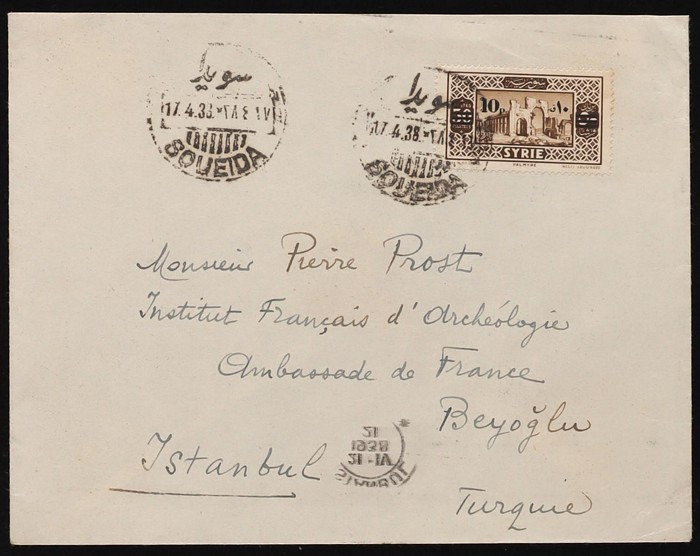 سويدا
17.4.38.٢٨ ٤ ١٧
SOUEIDA
سويدا
17.4.38.٢٨
SOUEIDA
10P. ١٠غ
SYRIE
PALMYRE
Monsieur Pierre Prost
Institut Français d'Archéologie
Ambassade de France
Beyoğlu
Istanbul
21
1938
21-IV
ISTANBUL
Turquie